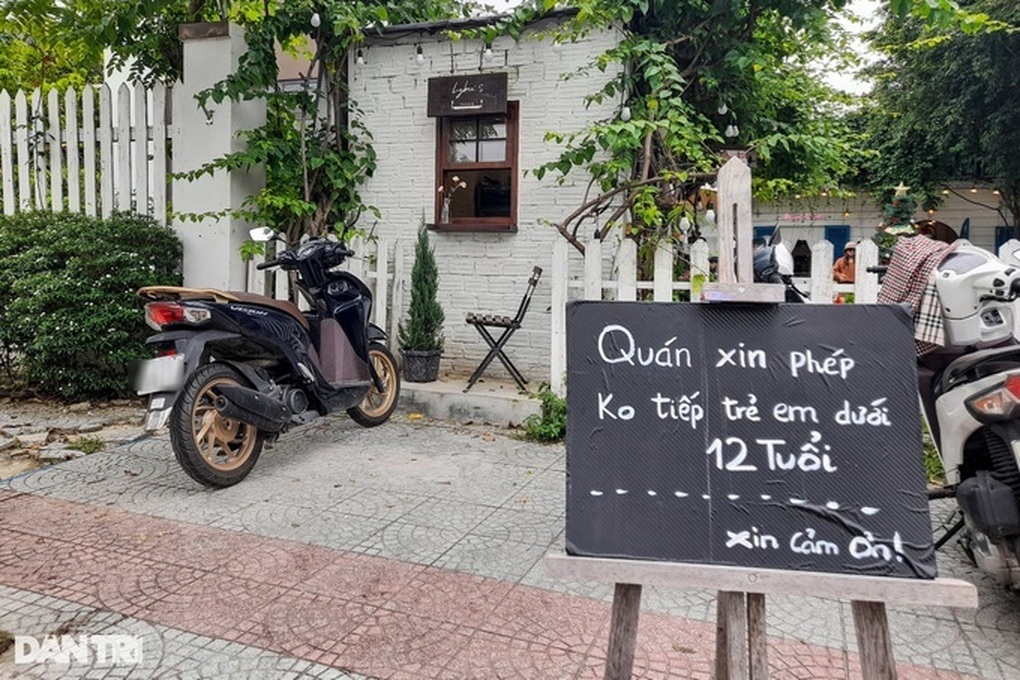 Lyhu's
VISION
Quán xin phép
Ko tiếp trẻ em dưới
12 Tuổi
xin cảm ơn!
DÂN TRÍ